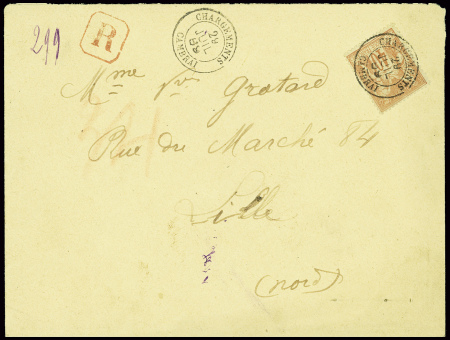 299
R
CHARGEMENTS
CAMBRAI
CHARGEMENTS
CAMBRAI
Mme Vve Grotard
Rue du Marché 84
Lille
(Nord)